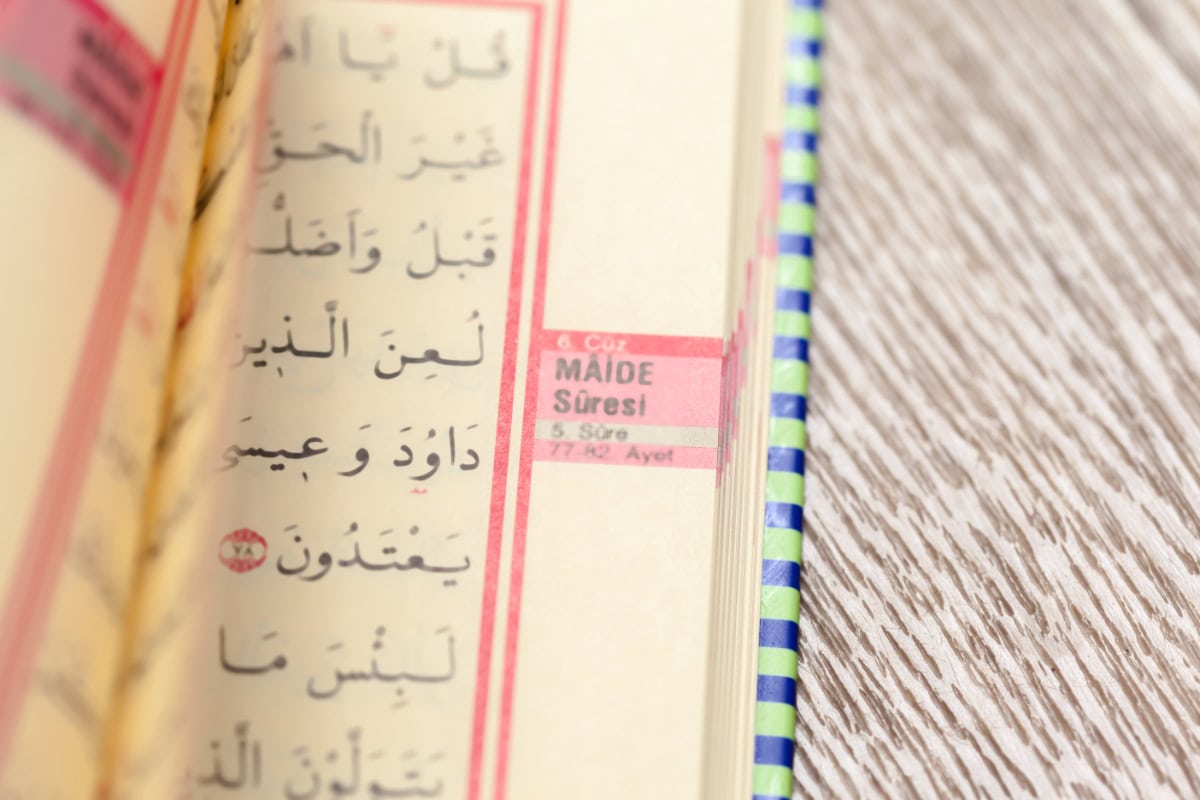 قُلْ يَٓا
غَيْرَ الْحَقِّ
قَبْلُ وَاَضَلُّ
لُعِنَ الَّذِينَ
دَاوُ۫دَ وَ عِيسَى
يَعْتَدُونَ ﴿٧٨﴾
لَبِئْسَ مَا
يَتَوَلَّوْنَ
6. Cüz
MÂİDE
Sûresi
5. Sûre
77-82 Ayet